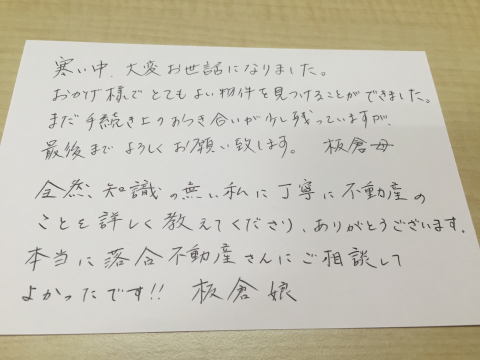 寒い中、大変お世話になりました。
おかげ様でとてもよい物件を見つけることができました。
まだ手続き上のおつき合いが少し残っていますが、
最後までよろしくお願い致します。 板倉母
全然、知識の無い私に丁寧に不動産の
ことを詳しく教えてくださり、ありがとうございます。
本当に落合不動産さんにご相談して
よかったです!! 板倉娘